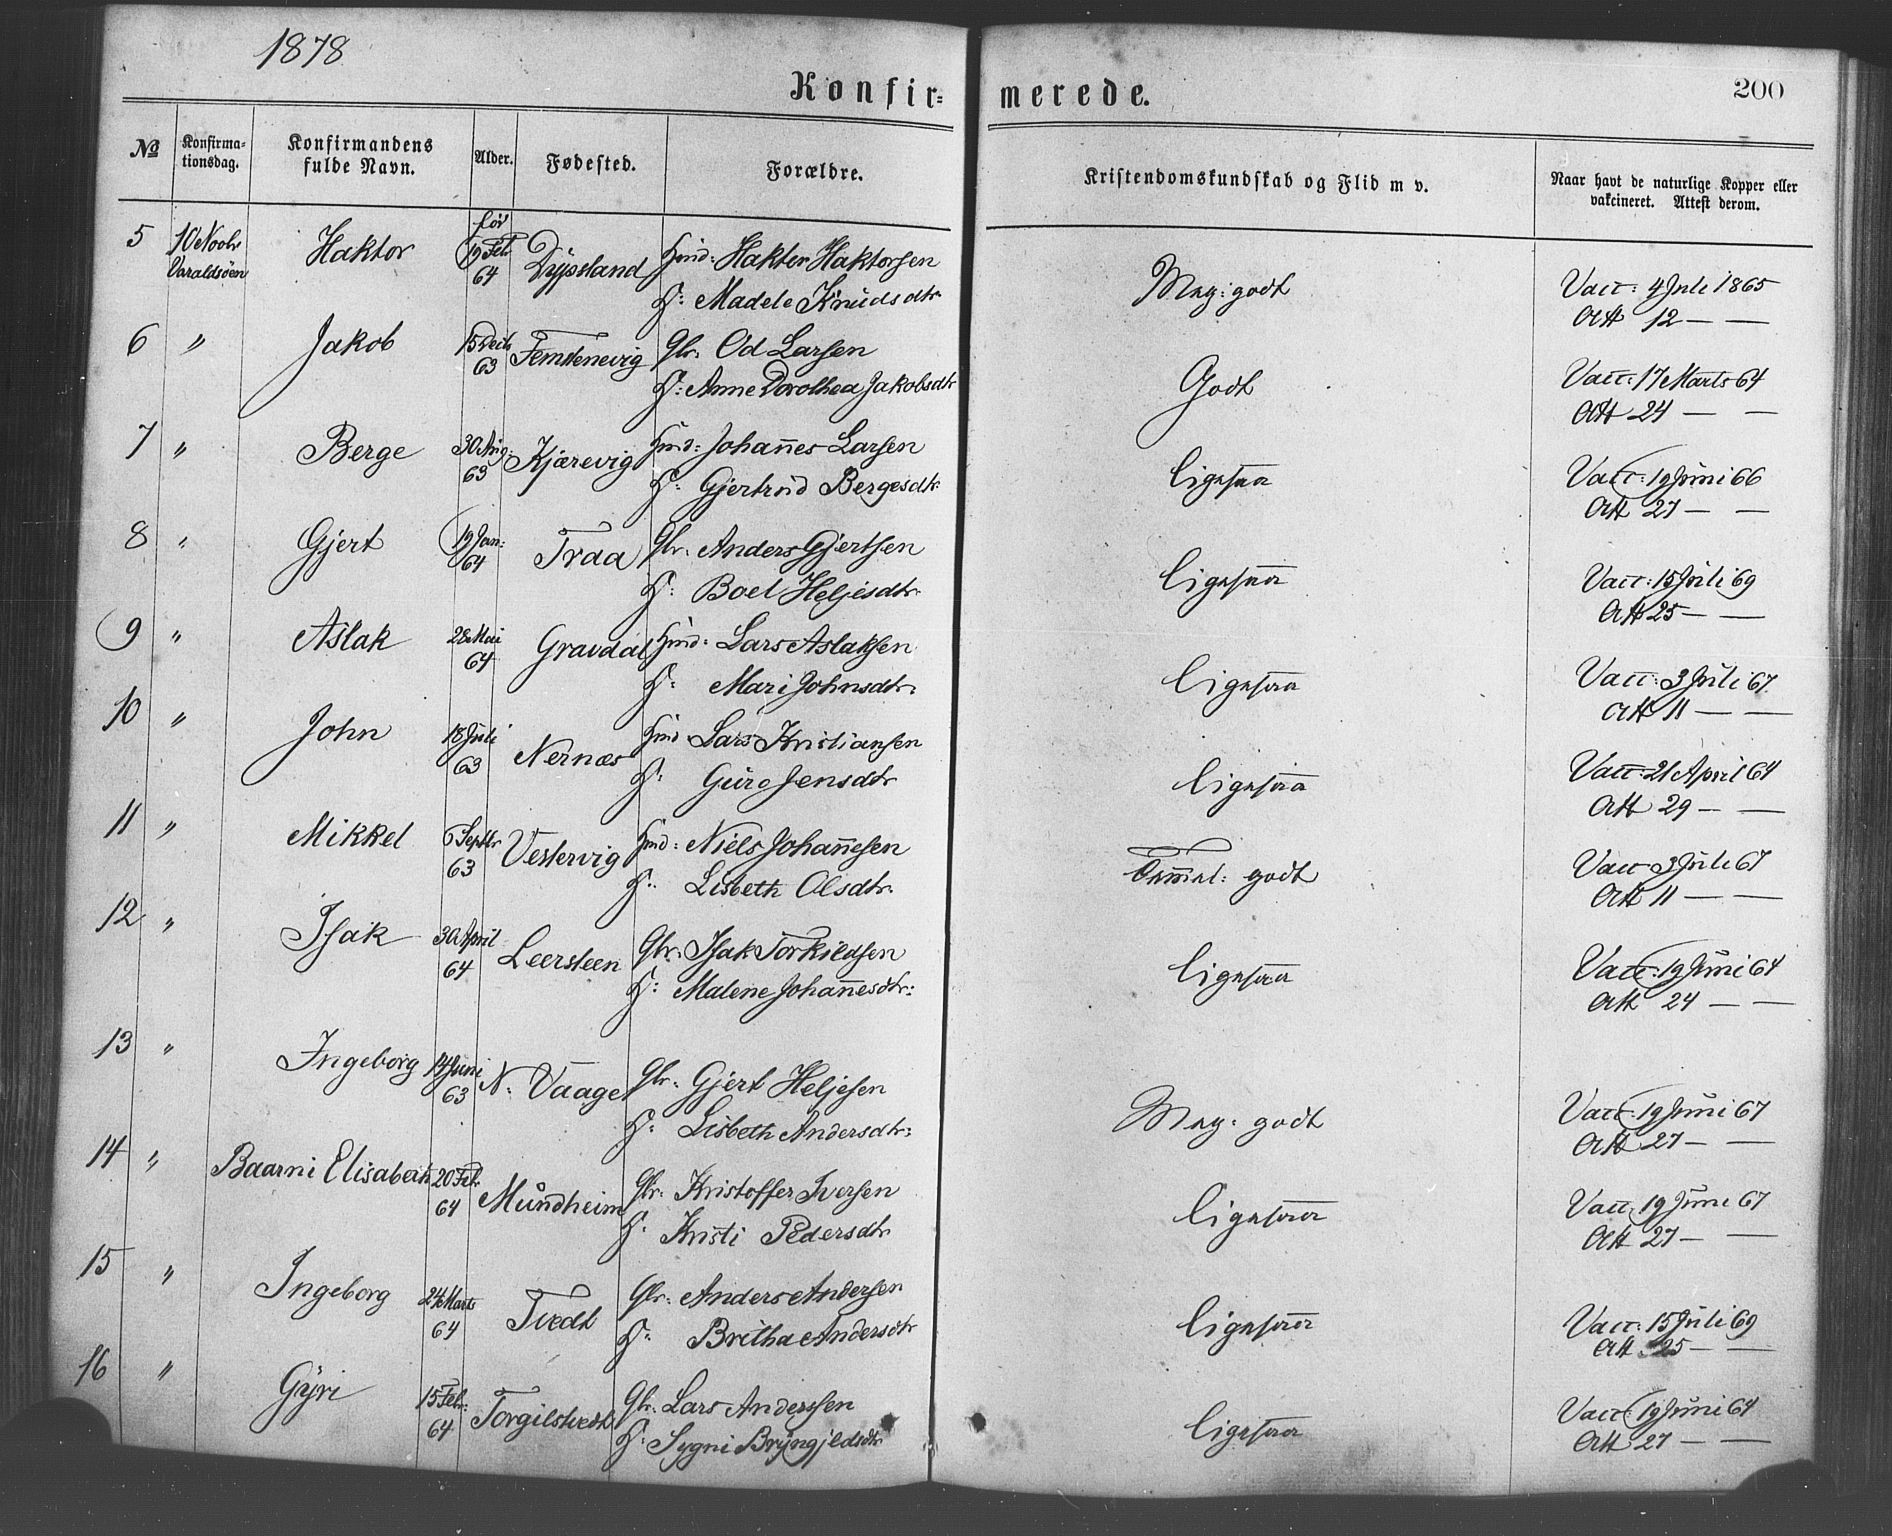 1878
Konfir= merede.
200
No
Konfirma=
tionsdag.
Konfirmandens
fulde Navn.
Alder.
Fødested.
Forældre.
Kristendomskundskab og Flid m v.
Naar havt de naturlige Kopper eller
vakcineret. Attest derom.
5 10 Novbr Haktor før 19 Feb 64 Dypsland Hmd: Hakter Haktorsen Meg: godt Vacc: 4 Juli 1865
Varaldsøen H: Madele Knudsdtr. Att 12 — —
6 " Jakob 15 Decb 63 Femstenevig Gbr. Od Larsen Godt Vacc: 17 Marts 64
H: Anne Dorothea Jakobsdtr Att 24 — —
7 " Berge 30 Aug: 63 Kjærevig Hmd: Johannes Larsen Ligesaa Vacc: 19 Juni 66
H: Gjertrud Bergesdtr. Att 27 — —
8 " Gjert 19 Jan: 64 Traa Gbr. Anders Gjertsen Ligesaa Vacc: 15 Juli 69
H: Boel Heljesdtr. Att 25 — —
9 " Aslak 28 Mai 64 Gravdal Hmd: Lars Aslaksen Ligesaa Vacc: 3 Juli 67
H: Mari Johnsdtr. Att 11 — —
10 " John 18 Juli 63 Nernæs Hmd: Lars Kristiansen Ligesaa Vacc: 21 April 64
H: Guro Jensdtr Att 29 — —
11 " Mikkel 6 Septbr 63 Vestervig Hmd: Niels Johannesen Temmel: godt Vacc 3 Juli 67
H: Lisbeth Olsdtr. Att 11 — —
12 " Isak 30 April 64 Leersteen Gbr: Isak Torkildsen Ligesaa Vacc: 19 Juni 64
H: Malene Johannesdtr: Att 24 — —
13 " Ingeborg 14 Juni 63 N. Vaage Gbr. Gjert Heljesen Meg: godt Vacc: 19 Juni 67
H: Lisbeth Andersdtr: Att 27 — —
14 " Baarni Elisabeth 20 Feb. 64 Mundheim Gbr. Kristoffer Iversen Ligesaa Vacc. 19 Juni 67
H: Kristi Pedersdtr Att 27 — —
15 " Ingeborg 24 Marts 64 Tvedt Gbr: Anders Andersen Ligesaa Vacc: 15 Juli 69
H: Britha Andersdtr Att 25 — —
16 " Gyri 15 Feb: 64 Torgilstvedt Gbr. Lars Anderssen Ligesaa Vacc 19 Juni 64
H: Sygni Bryngjeldsdtr Att 27 — —